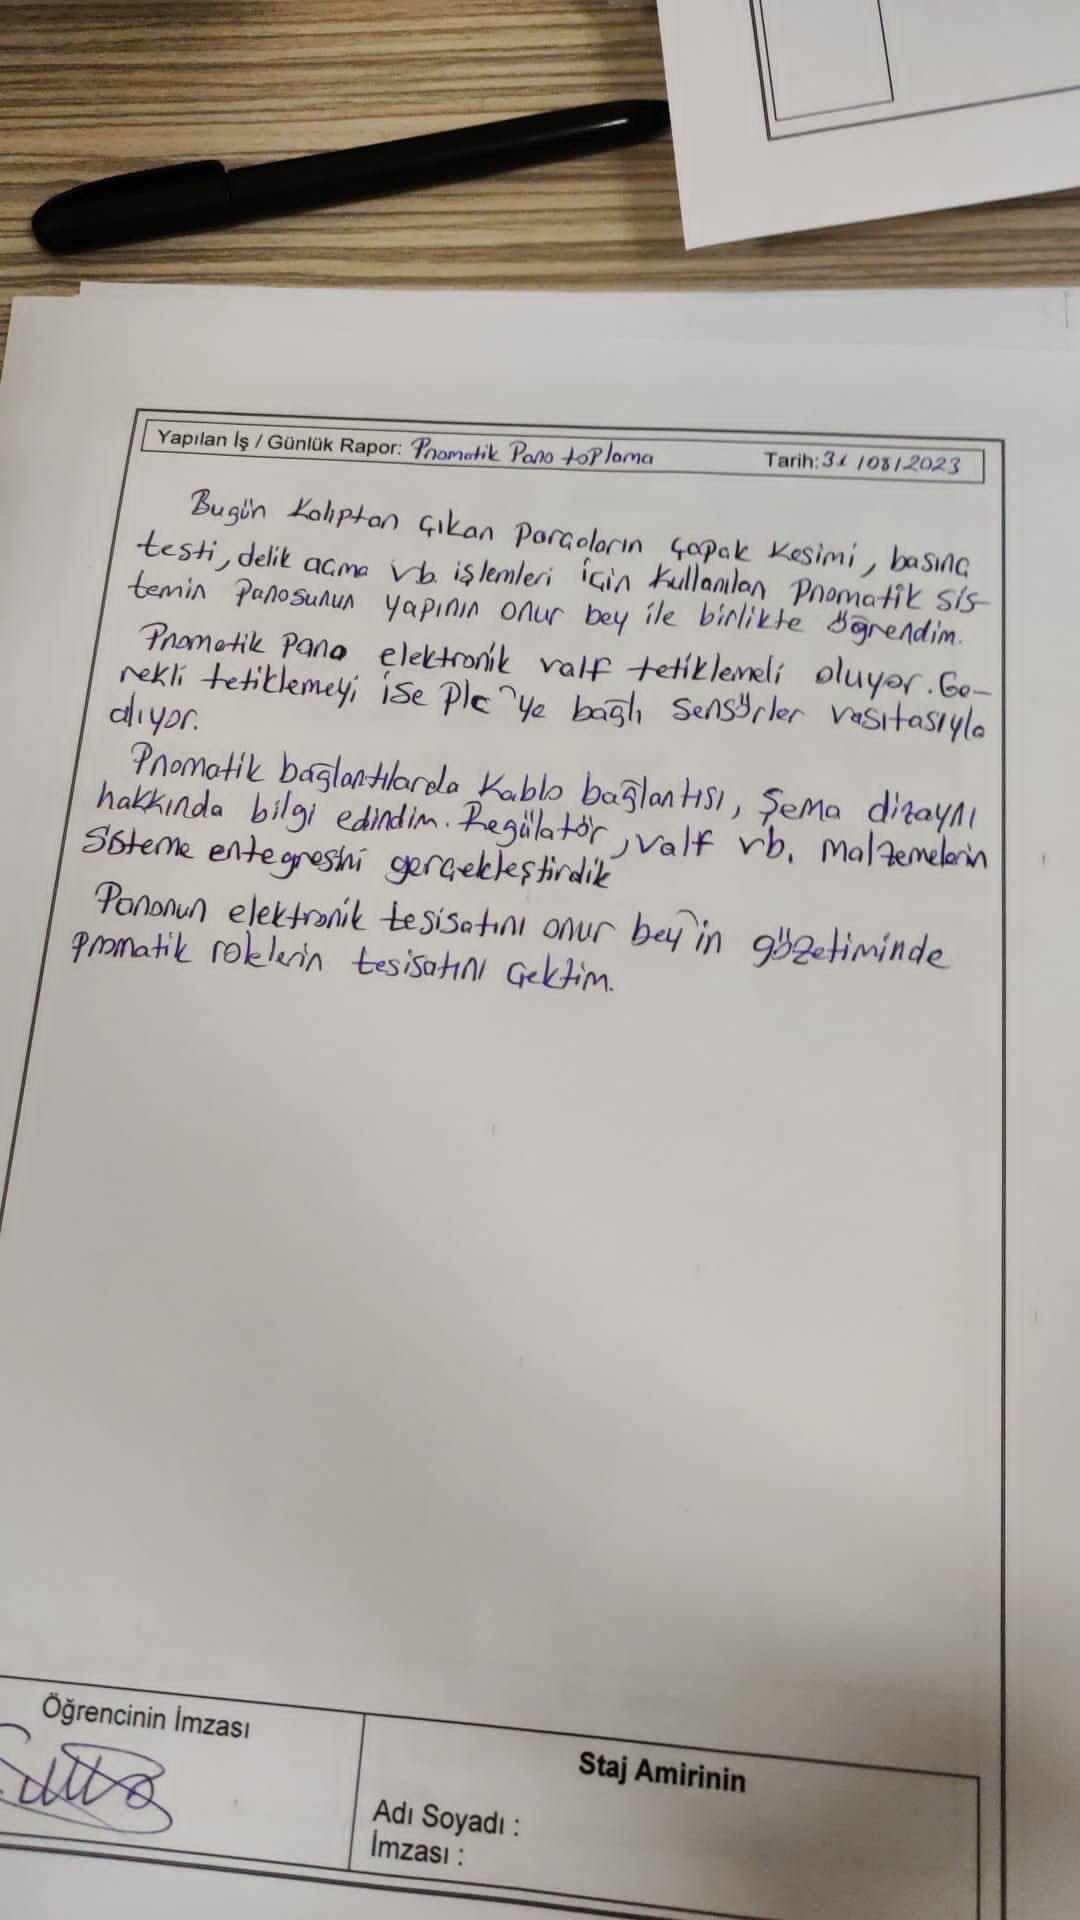 Yapılan İş / Günlük Rapor: Pnomatik Pano toplama
Tarih: 31/08/2023
Bugün Kalıptan çıkan Parçaların Çapak Kesimi, basınç
testi, delik açma vb. işlemleri için kullanılan Pnomatik sis-
temin Panosunun yapının onur bey ile birlikte öğrendim.
Pnomatik Pano elektronik valf tetiklemeli oluyor. Ge-
rekli tetiklemeyi ise Plc'ye bağlı sensörler vasıtasıyla
alıyor.
Pnomatik bağlantılarda Kablo bağlantısı, Şema dizaynı
hakkında bilgi edindim. Regülatör, valf vb. malzemelerin
Sisteme entegresini gerçekleştirdik
Panonun elektronik tesisatını onur bey'in gözetiminde
pnomatik rolelerin tesisatını çektim.
Öğrencinin İmzası
Staj Amirinin
Adı Soyadı :
İmzası :